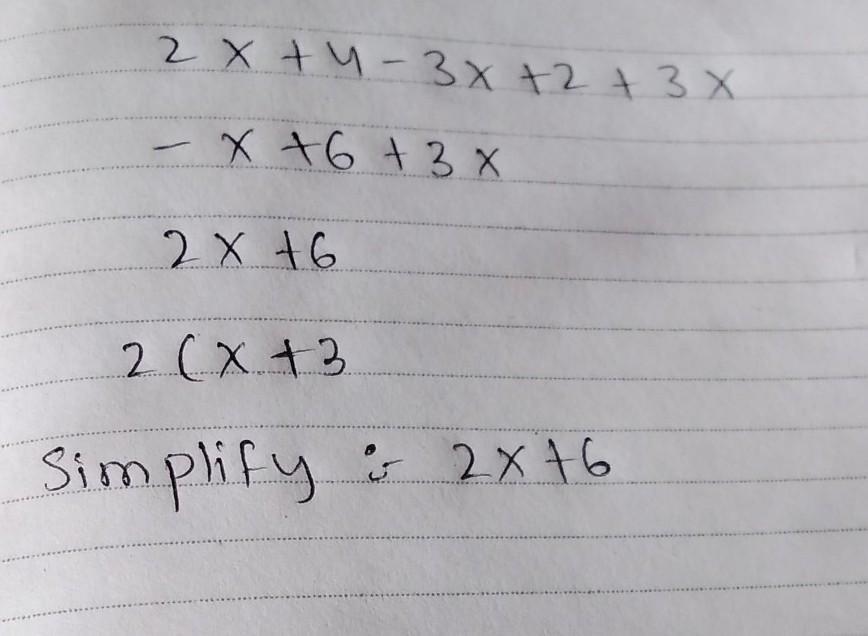 2x+4-3x+2+3x
-x+6+3x
2x+6
2(x+3
Simplify :- 2x+6